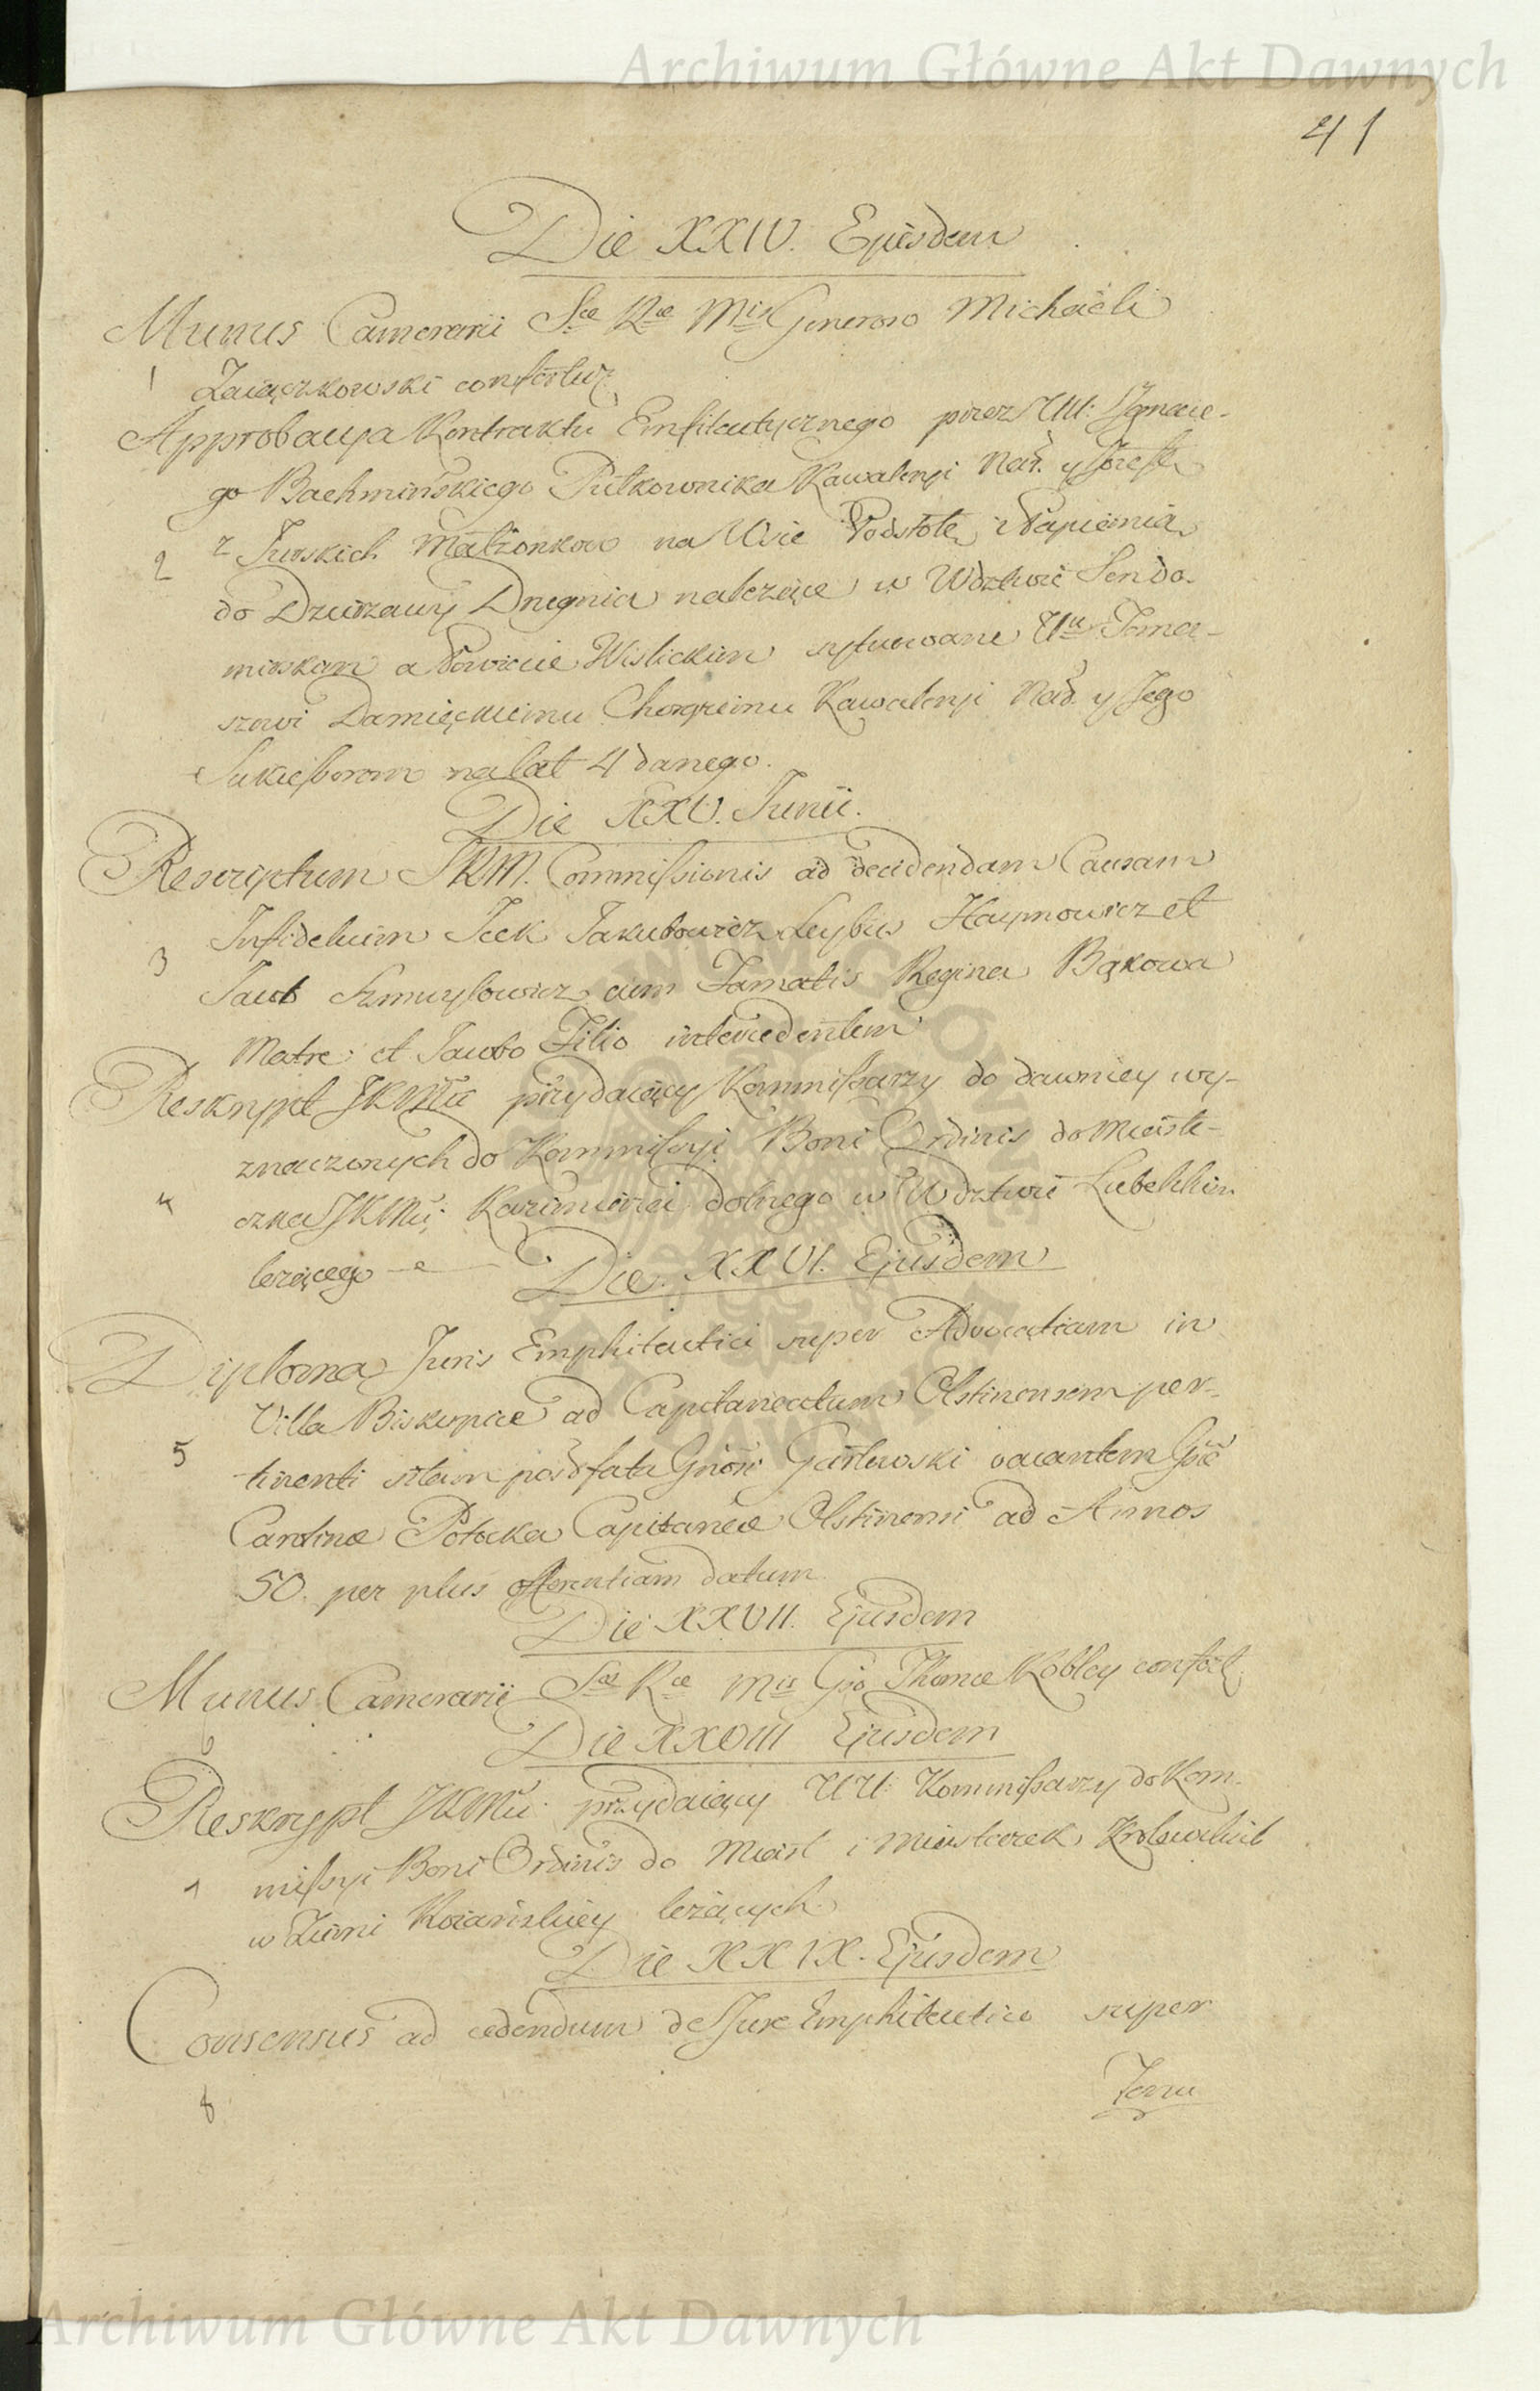 Archiwum Główne Akt Dawnych
41
Die XXIV. Ejusdem
Munus Camerarii Sæ Ræ Mtis Generoso Michaeli
1 Zaiączkowski confertur
Approbacya Kontraktu Emfiteutycznego przez UU: Ignacie-
go Bachminskiego Pułkownika Kawaleryi Nar. y
2 z Małżonkow na Wsie Podstołę
do Dzierzawy Dnegnia należące w Wdztwie Sendo-
mirskim a Powiecie Wislickim sytuowane Uu Toma-
szowi Damięckiemu Chorążemu Kawaleryi Nar. y Jego
Sukcessorom na lat 4 danego.
Die XXV. Junii.
Rescriptum SRM. Commissionis ad decidendam Causam
3 Infidelium Icek Jakubowicz Leybus Haymowicz et
Jacob Szmuylowicz cum Famatis Regina Bąkowa
Matre et Jacobo Filio intercedentem
Reskrypt JKMci przydaiący Kommissarzy do dawniey wy-
znaczonych do Kommissyi Boni Ordinis do Miaste-
4 czka JKMci Kazimierza dolnego w Wdztwie Lubelskim
leżącego
Die XXVI. Ejusdem
Diploma Juris Emphiteutici super Advocatiam in
Villa Biskupice ad Capitaneatum Olstinensem per-
5 tinenti sitam post fata Gnosi vacantem Gsæ
Carolinæ Potocka Capitaneæ Olstinensi ad Annos
50. per plus offerentiam datum
Die XXVII. Ejusdem
Munus Camerarii Sæ Ræ Mtis Gso Thomæ Kobley confert.
6
Die XXVIII Ejusdem
Reskrypt JKMci przydaiący UU: Kommissarzy do Kom-
7 missyi Boni Ordinis do Miast i Miasteczek
w Ziemi leżących
Die XXIX. Ejusdem
Consensus ad cedendum de Jure Emphiteutico super
8
Archiwum Główne Akt Dawnych